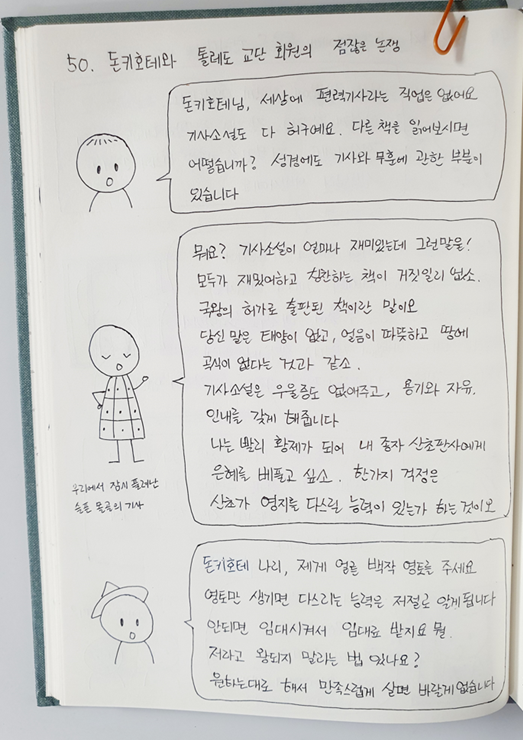 50. 돈키호테와 톨레도 교단 회원의 점잖은 논쟁
돈키호테님, 세상에 편력기사라는 직업은 없어요
기사소설도 다 허구예요. 다른 책을 읽어보시면
어떻습니까? 성경에도 기사와 무훈에 관한 부분이
있습니다
뭐요? 기사소설이 얼마나 재미있는데 그런말을!
모두가 재밌어하고 칭찬하는 책이 거짓일리 없소.
국왕의 허가로 출판된 책이란 말이오
당신 말은 태양이 없고, 얼음이 따뜻하고 땅에
곡식이 없다는 것과 같소.
기사소설은 우울증도 없애주고, 용기와 자유.
인내를 갖게 해줍니다
나는 빨리 황제가 되어 내 종자 산초판사에게
은혜를 베풀고 싶소. 한가지 걱정은
산초가 영지를 다스릴 능력이 있는가 하는것이오
우리에서 잠시 풀려난
슬픈 몰골의 기사
돈키호테 나리, 제게 얼른 백작 영토를 주세요
영토만 생기면 다스리는 능력은 저절로 알게됩니다
안되면 임대시켜서 임대료 받지요 뭘.
저라고 왕되지 말라는 법 있나요?
원하는대로 해서 만족스럽게 살면 바랄게없습니다